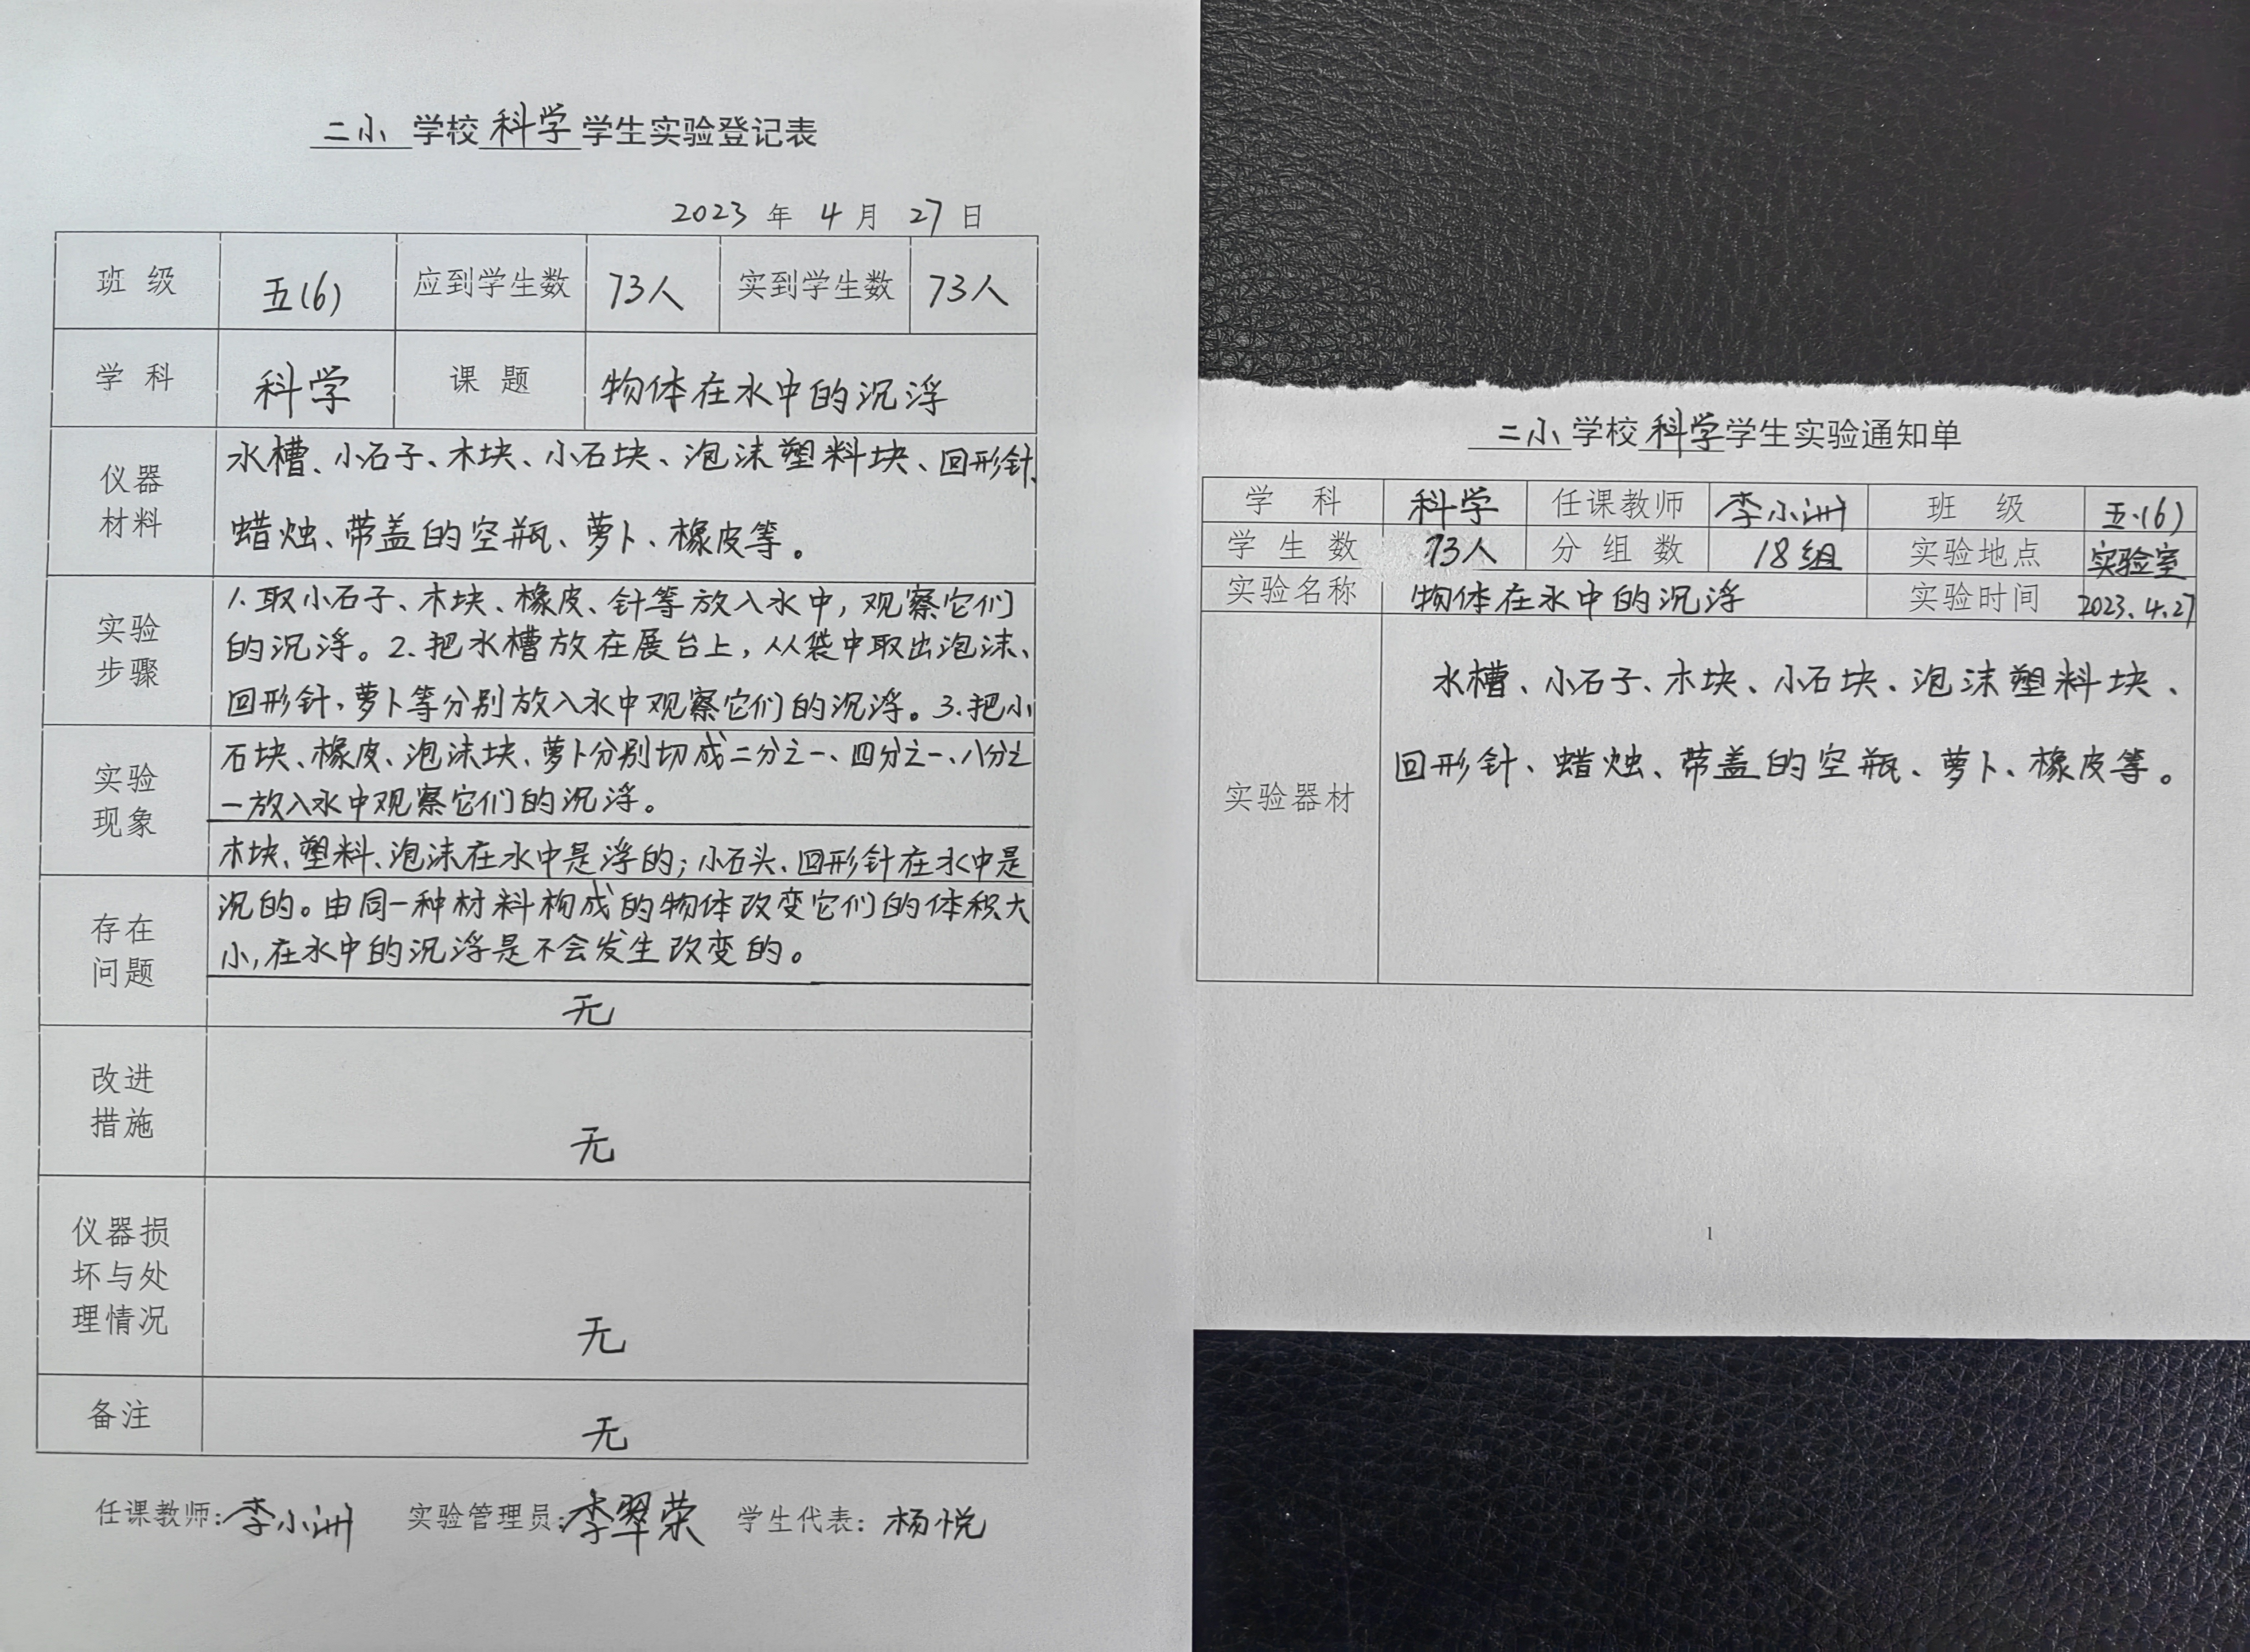 二小 学校 科学 学生实验登记表
2023 年 4 月 27 日
班 级 五(6) 应到学生数 73人 实到学生数 73人
学 科 科学 课 题 物体在水中的沉浮
仪器
材料
水槽、小石子、木块、小石块、泡沫塑料块、回形针、
蜡烛、带盖的空瓶、萝卜、橡皮等。
实验
步骤
1.取小石子、木块、橡皮、针等放入水中,观察它们
的沉浮。2.把水槽放在展台上,从袋中取出泡沫、
回形针、萝卜等分别放入水中观察它们的沉浮。3.把小
实验
现象
石块、橡皮、泡沫块、萝卜分别切成二分之一、四分之一、八分之
一放入水中观察它们的沉浮。
木块、塑料、泡沫在水中是浮的;小石头、回形针在水中是
存在
问题
沉的。由同一种材料构成的物体改变它们的体积大
小,在水中的沉浮是不会发生改变的。
无
改进
措施
无
仪器损
坏与处
理情况
无
备注
无
任课教师:李小洲 实验管理员:李翠荣 学生代表:杨悦
二小 学校 科学 学生实验通知单
学 科 科学 任课教师 李小洲 班 级 五.(6)
学 生 数 73人 分 组 数 18组 实验地点 实验室
实验名称 物体在水中的沉浮 实验时间 2023.4.27
实验器材
水槽、小石子、木块、小石块、泡沫塑料块、
回形针、蜡烛、带盖的空瓶、萝卜、橡皮等。
1